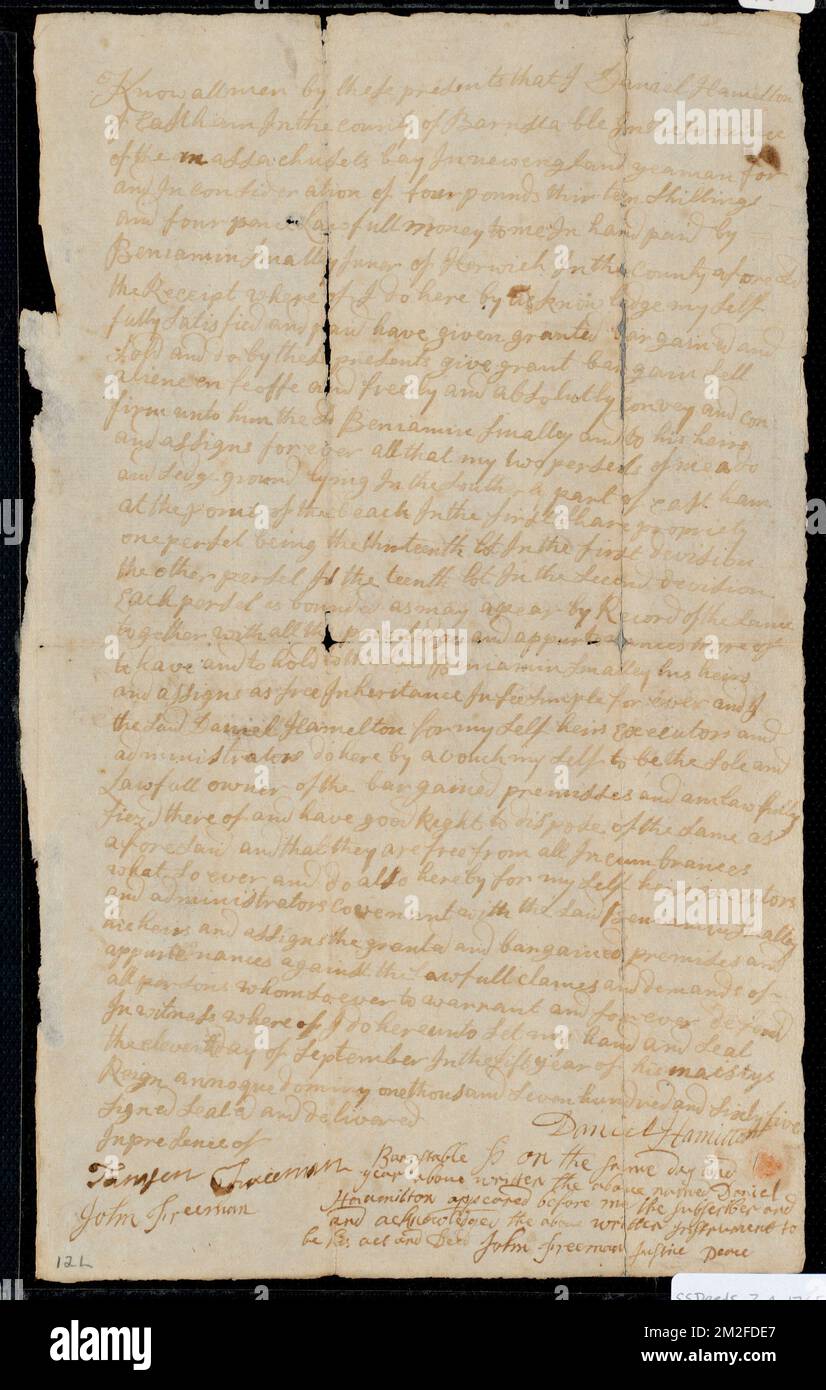 Know all men by these presents that I Daniel Hamelton
of Eastham In the county of Barnstable In the province
of the massachusets bay In newengland yeaman for
and In consideration of four pounds thirteen shillings
and four pence Lawfull money to me In hand paid by
Beniamin Smalley Juner of Herwich In the County afore sd
the Receipt where of I do here by acknowledge my self
fully satisfied and paid have given granted bargained and
sold and do by these presents give grant bargain sell
aliene en feoffe and freely and absolutly convey and con
firm unto him the sd Beniamin Smalley and to his heirs
and assigns for ever all that my two persels of meado
and sedg ground lying In the southerd part of east ham
at the point of the beach In the first share propriety
one persel being the thirteenth lot In the first devision
the other persel Is the teenth lot In the second devision
Each persel is bounded as may apear by Record of the same
together with all the and appurtenances there of
to have and to hold to the Beniamin Smalley his heirs
and assigns as free Inheritance In fee simple for ever and I
the said Daniel Hamelton for my self heirs executors and
administrators do here by avouch my self to be the sole and
Lawfull owner of the bargained premisses and am lawfully
siezd there of and have good Right to dispose of the same as
afore said and that they are free from all Incumbrances
what so ever and do also hereby for my self heirs executors
and administrators covenant with the said Beniamin Smalley
heirs and assigns the granted and bargained premises and
appurtenances against the Lawfull clames and demands of
all persons whom so ever to warrant and forever defend
In witness where of I do here unto set my hand and seal
the eleventh day of September In the fifth year of his maestys
Reign annoque dominy one thousand seven hundred and sixty five
signed seald and delivered
In presence of
Daniel Hamilton
Freeman
John Freeman
Barnstable Ss on the same day and
year above written the above named Daniel
Haumilton appeared before me the subscriber and
and acknowledged the above written Instrument to
be his act and Deed John Freeman Justice Peace
12L
alamy
Image ID: 2M2FDE7
www.alamy.com